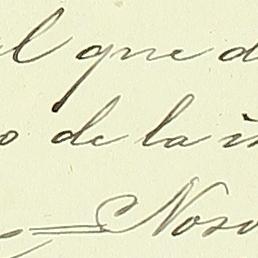 el que d
o de la i
= Nos